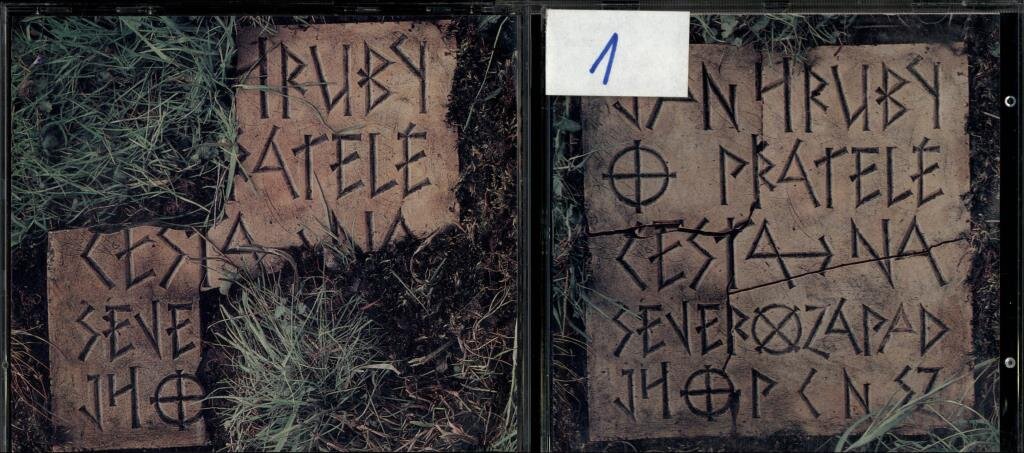 HRUBY
PRATELE
CESTA NA
SEVE
JHO
1
JAN HRUBY
O PRATELE
CESTA NA
SEVEROZAPAD
JHO P C N